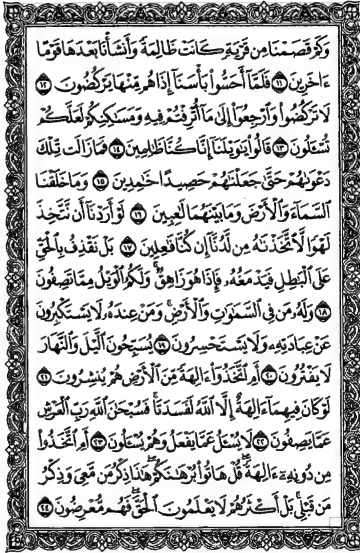 وَكَمْ قَصَمْنَا مِن قَرْيَةٍ كَانَتْ ظَالِمَةً وَأَنشَأْنَا بَعْدَهَا قَوْمًا
ءَاخَرِينَ ١١ فَلَمَّآ أَحَسُّوا۟ بَأْسَنَآ إِذَا هُم مِّنْهَا يَرْكُضُونَ ١٢
لَا تَرْكُضُوا۟ وَٱرْجِعُوٓا۟ إِلَىٰ مَآ أُتْرِفْتُمْ فِيهِ وَمَسَٰكِنِكُمْ لَعَلَّكُمْ
تُسْـَٔلُونَ ١٣ قَالُوا۟ يَٰوَيْلَنَآ إِنَّا كُنَّا ظَٰلِمِينَ ١٤ فَمَا زَالَت تِّلْكَ
دَعْوَىٰهُمْ حَتَّىٰ جَعَلْنَٰهُمْ حَصِيدًا خَٰمِدِينَ ١٥ وَمَا خَلَقْنَا
ٱلسَّمَآءَ وَٱلْأَرْضَ وَمَا بَيْنَهُمَا لَٰعِبِينَ ١٦ لَوْ أَرَدْنَآ أَن نَّتَّخِذَ
لَهْوًا لَّٱتَّخَذْنَٰهُ مِن لَّدُنَّآ إِن كُنَّا فَٰعِلِينَ ١٧ بَلْ نَقْذِفُ بِٱلْحَقِّ
عَلَى ٱلْبَٰطِلِ فَيَدْمَغُهُۥ فَإِذَا هُوَ زَاهِقٌ ۚ وَلَكُمُ ٱلْوَيْلُ مِمَّا تَصِفُونَ
١٨ وَلَهُۥ مَن فِى ٱلسَّمَٰوَٰتِ وَٱلْأَرْضِ ۚ وَمَنْ عِندَهُۥ لَا يَسْتَكْبِرُونَ
عَنْ عِبَادَتِهِۦ وَلَا يَسْتَحْسِرُونَ ١٩ يُسَبِّحُونَ ٱلَّيْلَ وَٱلنَّهَارَ
لَا يَفْتُرُونَ ٢٠ أَمِ ٱتَّخَذُوٓا۟ ءَالِهَةً مِّنَ ٱلْأَرْضِ هُمْ يُنشِرُونَ ٢١
لَوْ كَانَ فِيهِمَآ ءَالِهَةٌ إِلَّا ٱللَّهُ لَفَسَدَتَا ۚ فَسُبْحَٰنَ ٱللَّهِ رَبِّ ٱلْعَرْشِ
عَمَّا يَصِفُونَ ٢٢ لَا يُسْـَٔلُ عَمَّا يَفْعَلُ وَهُمْ يُسْـَٔلُونَ ٢٣ أَمِ ٱتَّخَذُوا۟
مِن دُونِهِۦٓ ءَالِهَةً ۖ قُلْ هَاتُوا۟ بُرْهَٰنَكُمْ ۖ هَٰذَا ذِكْرُ مَن مَّعِىَ وَذِكْرُ
مَن قَبْلِى ۗ بَلْ أَكْثَرُهُمْ لَا يَعْلَمُونَ ٱلْحَقَّ ۖ فَهُم مُّعْرِضُونَ ٢٤